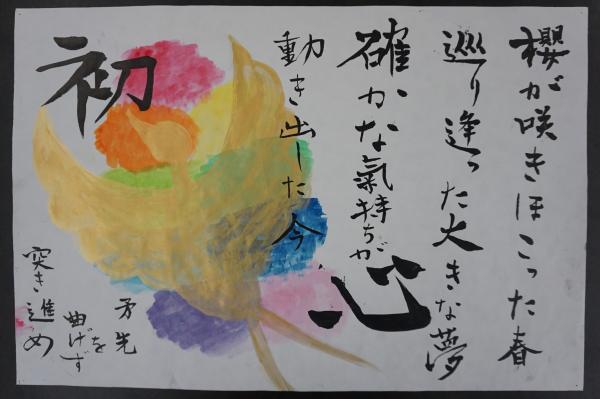 櫻が咲きほこった春
巡り逢った大きな夢
確かな氣持ちが
動き出した今
初
心
矛先
を
曲げず
突き進め